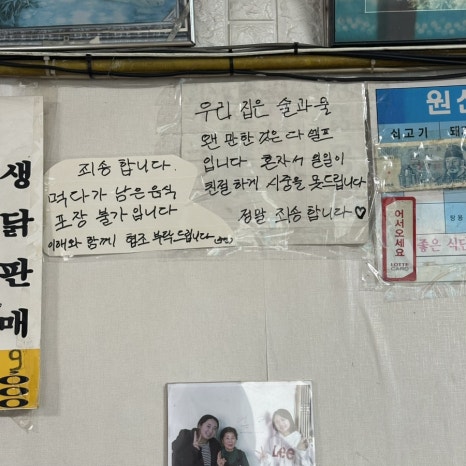 생닭판매
죄송합니다.
먹다가 남은음식
포장 불가입니다
협조 부탁드립니다
우리 집은 술과 물
왠 만한것은 다 쎌프
입니다 혼자서 일일이
친절하게 시중을 못드립니다
정말 죄송합니다♡
쇠고기
어서오세요
LOTTE CARD
좋은 식단
Lee